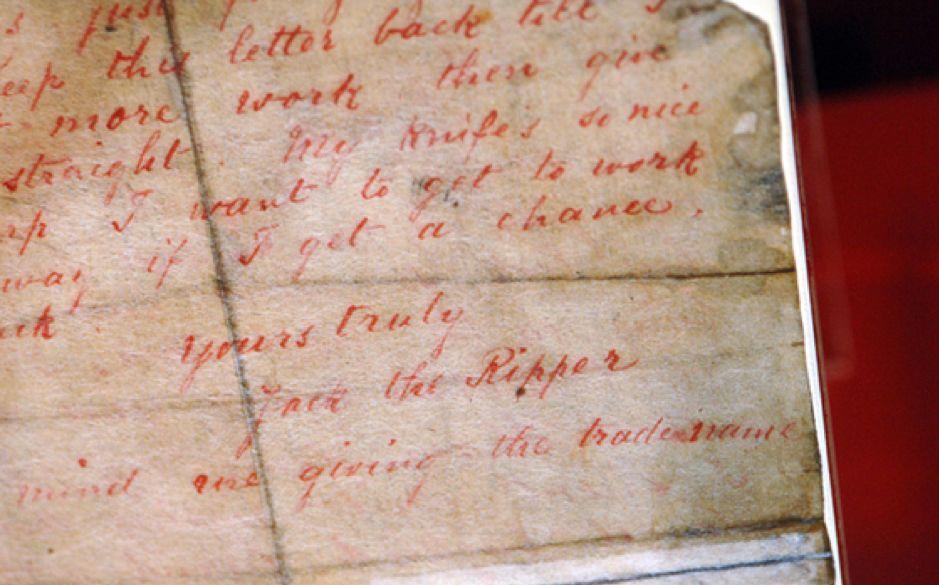 s just
keep this letter back till I
more work then give
straight. My knife's so nice
rp I want to get to work
way if I get a chance.
uck.
yours truly
Jack the Ripper
mind me giving the trade name